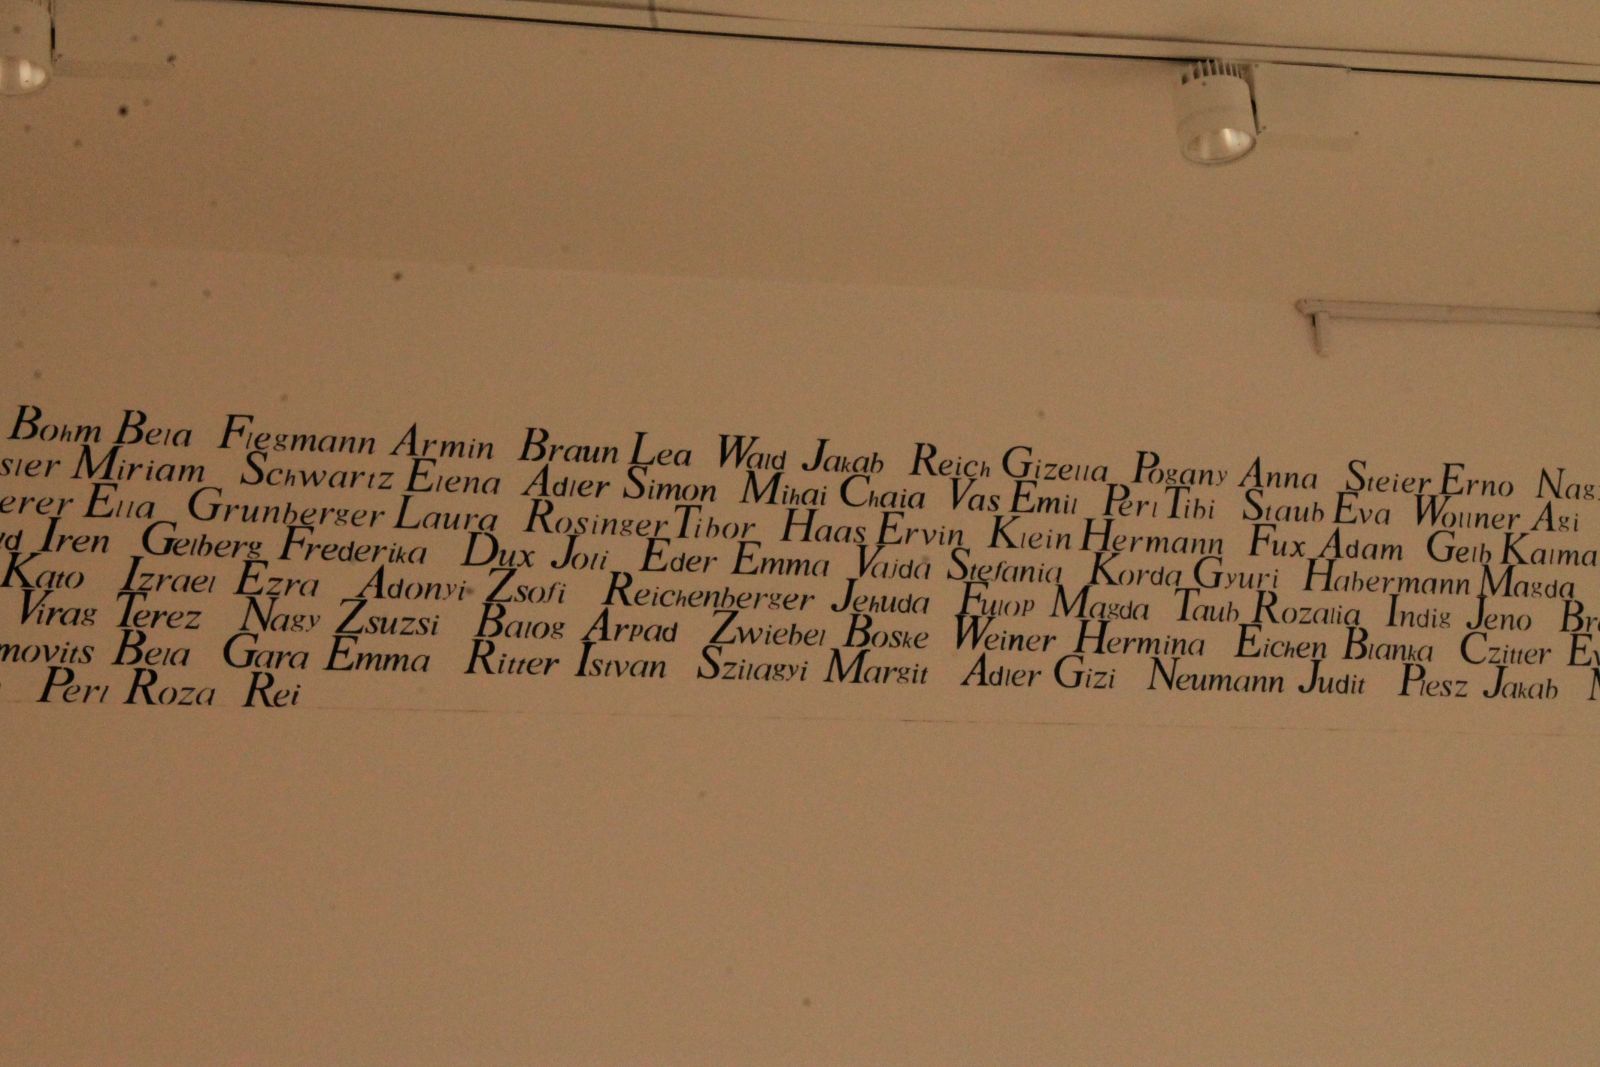 Bohm Bela Flegmann Armin Braun Lea Wald Jakab Reich Gizella Pogany Anna Steier Erno Nag
sler Miriam Schwartz Elena Adler Simon Mihai Chaia Vas Emil Perl Tibi Staub Eva Wollner Agi
erer Ella Grunberger Laura Rosinger Tibor Haas Ervin Klein Hermann Fux Adam Gelb Kalma
Iren Gelberg Frederika Dux Joli Eder Emma Vajda Stefania Korda Gyuri Habermann Magda
Kato Izrael Ezra Adonyi Zsofi Reichenberger Jehuda Fulop Magda Taub Rozalia Indig Jeno Br
Virag Terez Nagy Zsuzsi Balog Arpad Zwiebel Boske Weiner Hermina Eichen Blanka Czitler Ev
movits Bela Gara Emma Ritter Istvan Szilagyi Margit Adler Gizi Neumann Judit Plesz Jakab
Perl Roza Rei